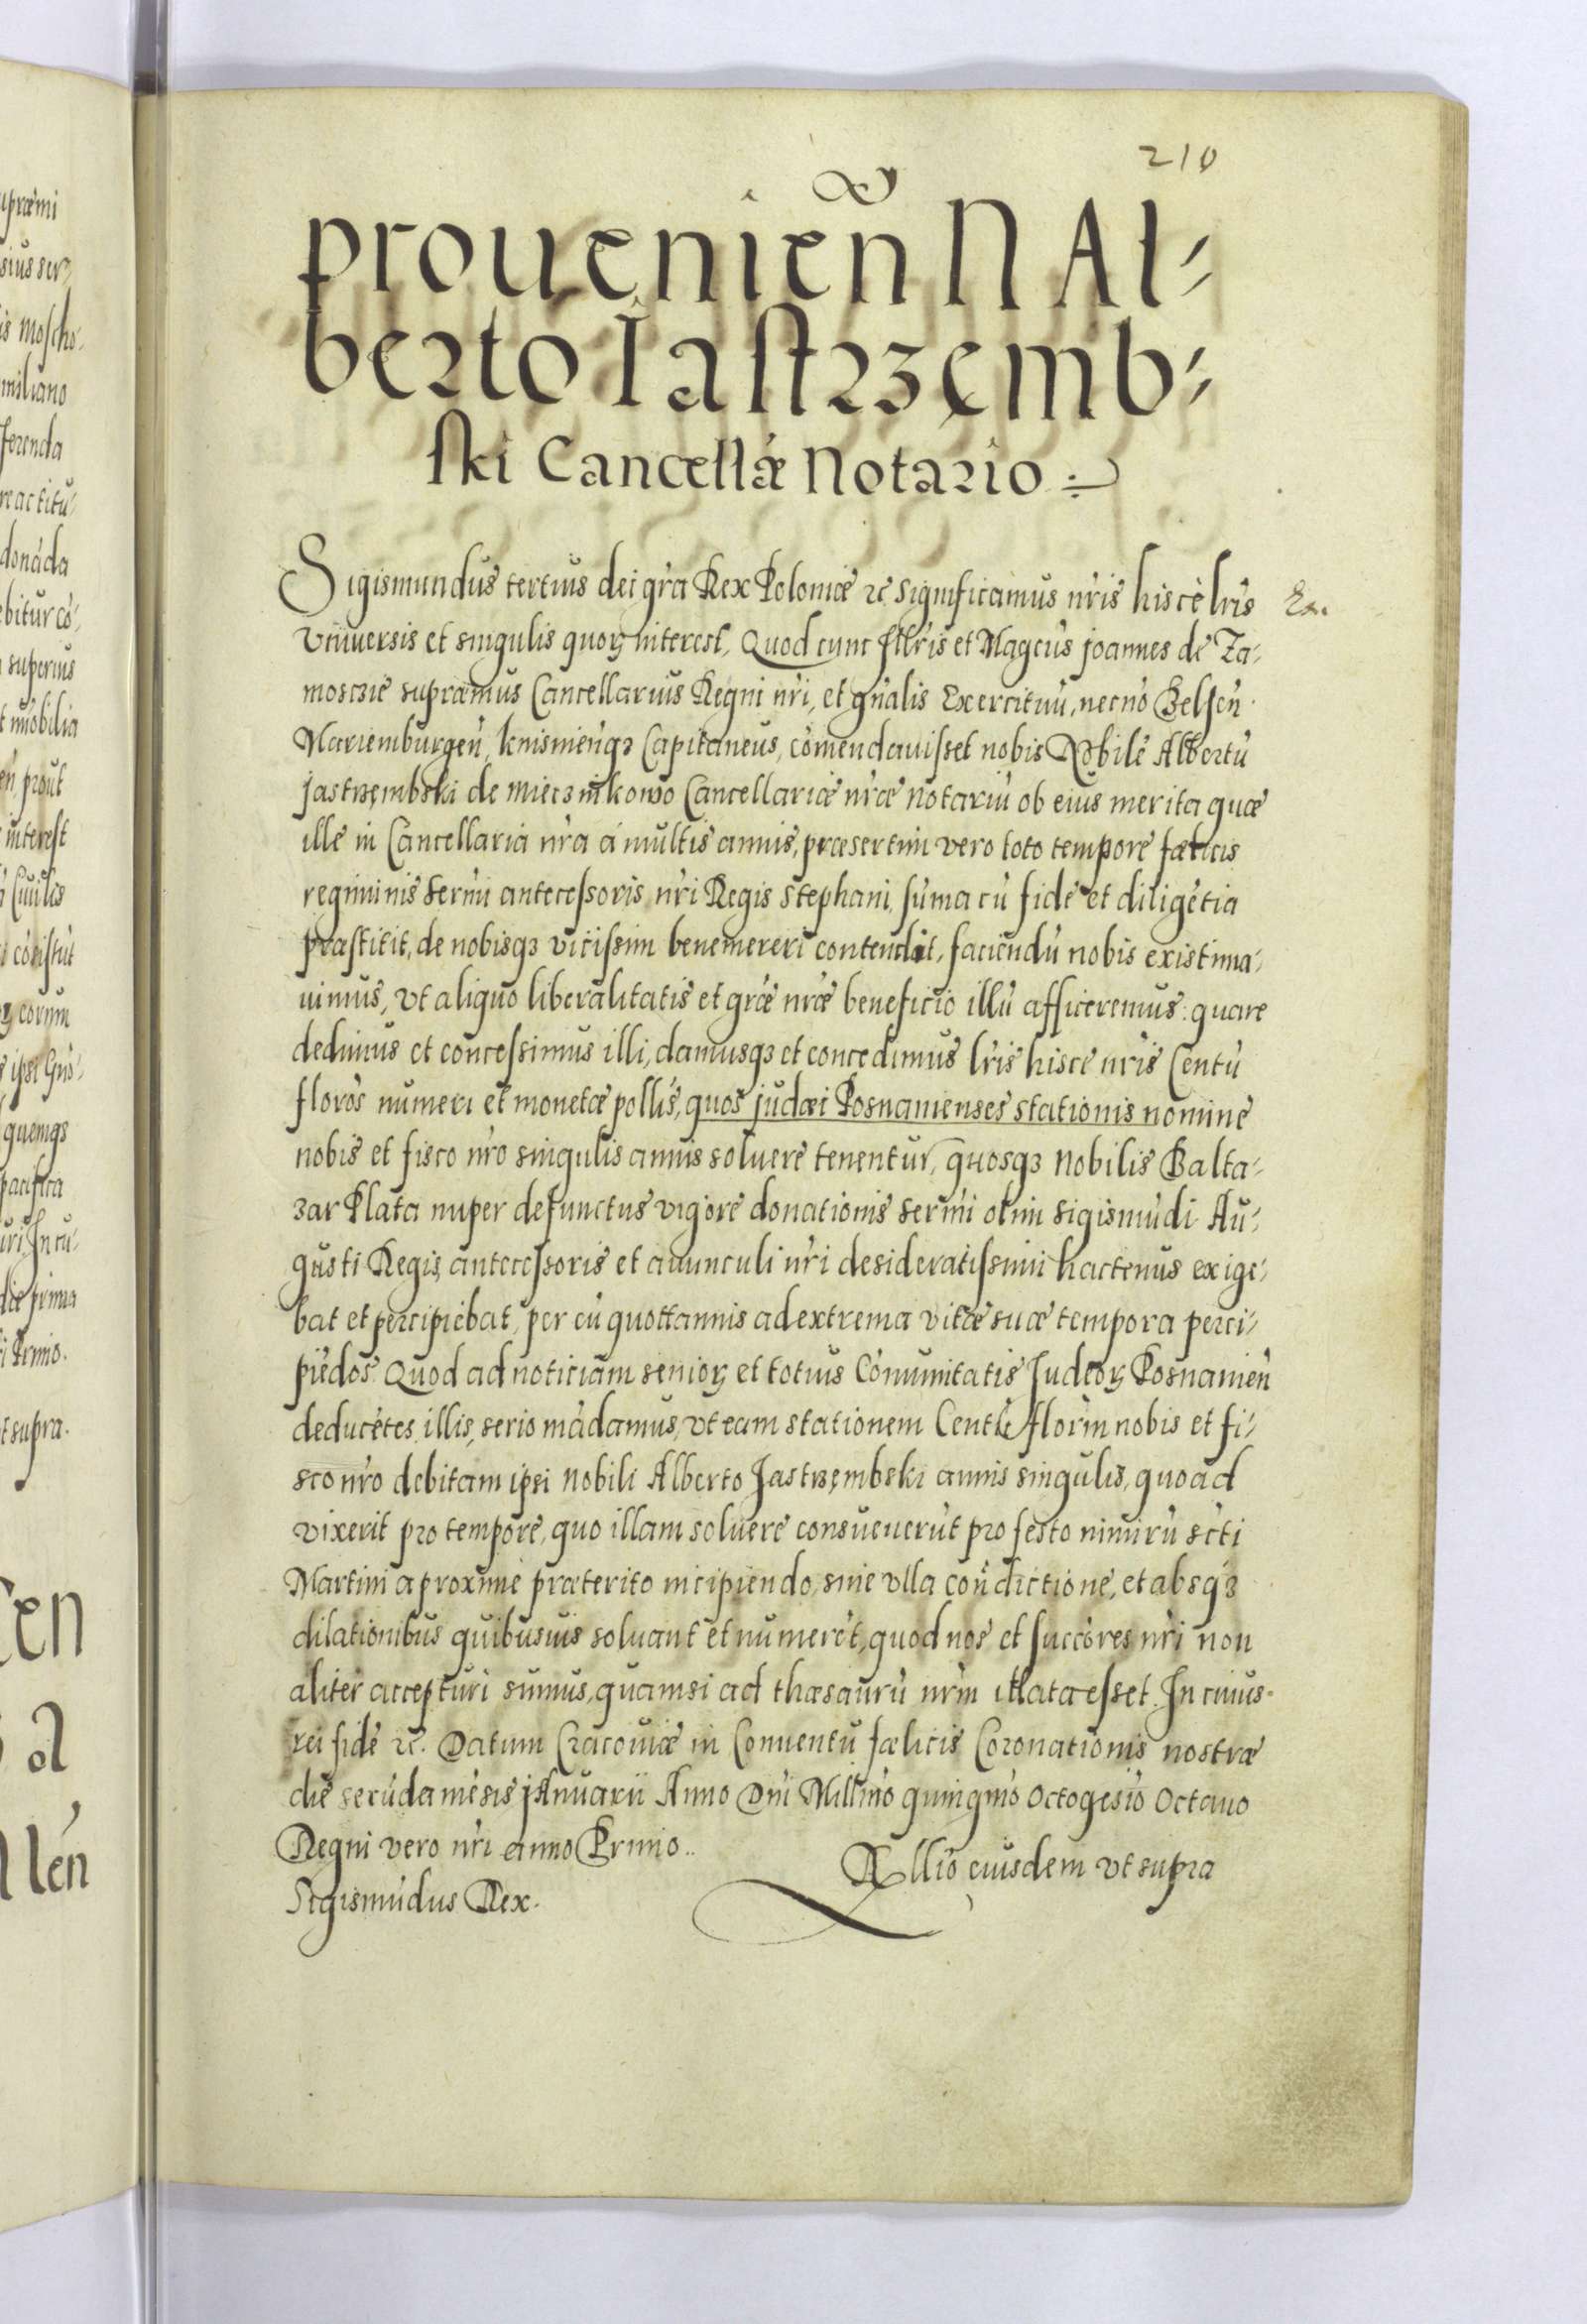 210
prouenień N Al-
berto Iastrzęmb-
ski Cancellæ Notario
Sigismundus tertius dei gŕa Rex Poloniæ ꝛc significamus nŕis hisce lŕis Ex.
Vniuersis et singulis quoꝝ interest, Quod cum Illŕis et Magcus Joannes de Za-
moscie supræmus Cancellarius Regni nŕi, et gńalis Exercituu, necnō Belsen
Mariemburgeń, knisnieńqꝫ Capitaneus, cōmendauisset nobis Nobilē Albertū
Jastrzęmbski de Miecznikowo Cancellariæ nŕæ Notariū ob eius merita quæ
ille in Cancellaria nŕa á multis annis, præsertim vero toto tempore fælicis
regiminis sermi antecessoris nŕi Regis Stephani, sūma cū fide et diligētia
præstitit, de nobisqꝫ vicissim benemereri contendit, faciendū nobis existima-
uimus, vt aliquo liberalitatis et gŕæ nŕæ beneficio illū afficeremus: quare
dedimus et concessimus illi, damusqꝫ et concedimus lŕis hisce nŕis Centū
florōs numeri et monetæ pollis, quos judæi Posnanienses stationis nomine
nobis et fisco nŕo singulis annis soluere tenentur, quosqꝫ Nobilis Balta-
zar Plata nuper defunctus vigore donationis sermi olim Sigismūdi Au-
gusti Regis, antecessoris et auunculi nŕi desideratissimi hactenus exige-
bat et percipiebat, per eū quottannis ad extrema vitæ suæ tempora perci-
piēdos. Quod ad noticiam senioꝝ et totius Cōmunitatis Judeoꝝ Posnanień
deducētes, illis, serio mādamus, vt eam stationem Centū florīn nobis et fi-
sco nŕo debitam ipsi Nobili Alberto Jastrzęmbski annis singulis, quoad
vixerit pro tempore, quo illam soluere consueuerūt pro festo nimirū scti
Martini a proxime præterito incipiendo, sine vlla condictione, et absqꝫ
dilationibus quibusuis soluant et numerēt, quod nos et succōres nŕi non
aliter accepturi sumus, quamsi ad thæsaurū nŕm illata esset. In cuius
rei fidē ꝛc. Datum Cracouiæ in Conuentu fælicis Coronationis nostræ
die secūda mēsis januarii Anno Dńi Millmo quingmo Octogesio Octauo
Regni vero nŕi anno Primo..
Sigismūdus Rex.
Rllio eiusdem vt supra